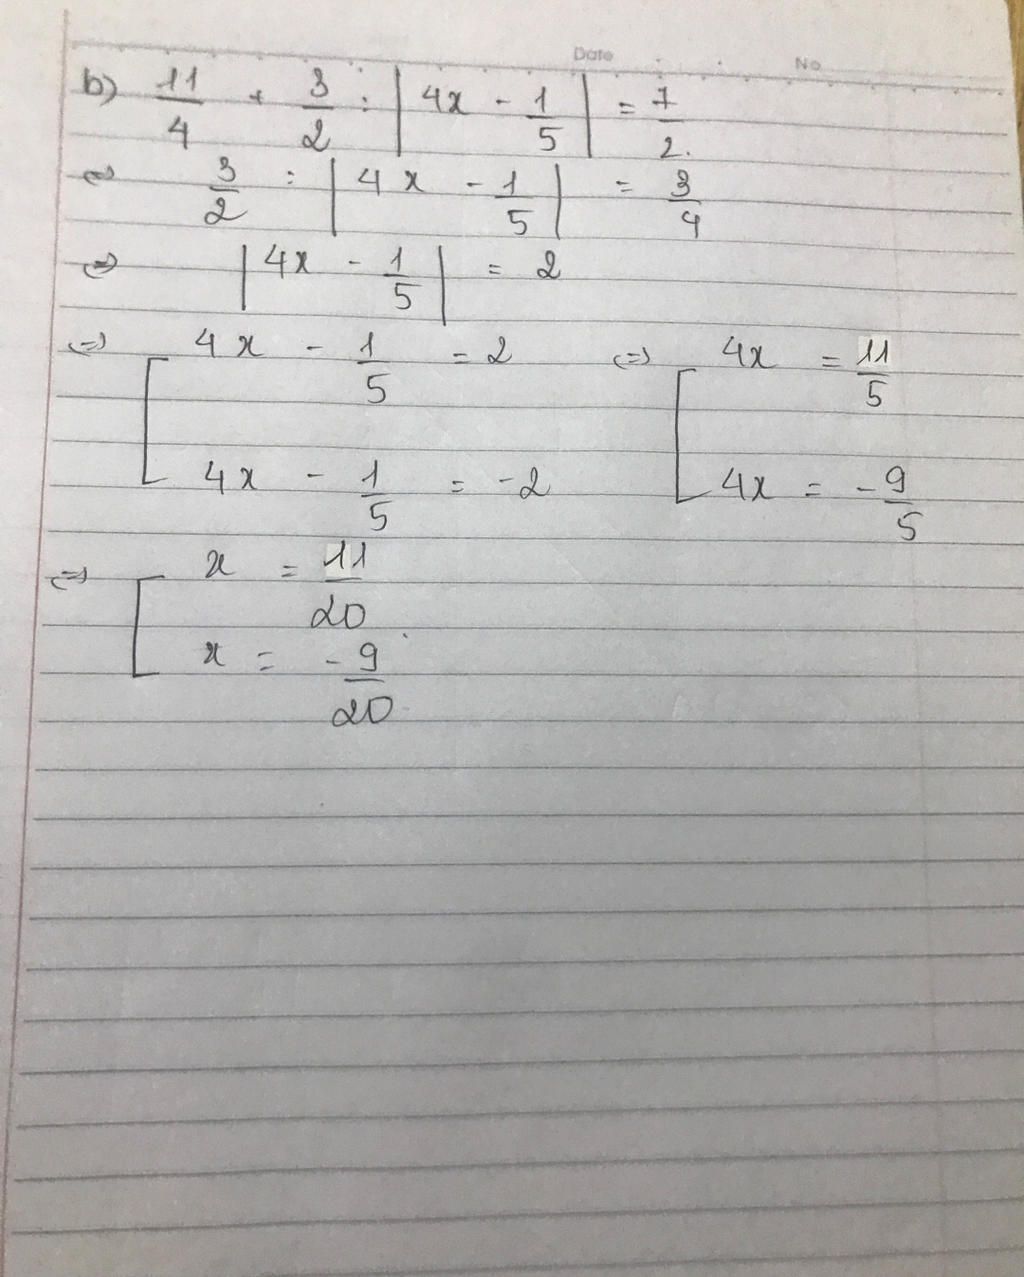 Date No
b) 11/4 + 3/2 : |4x - 1/5| = 7/2.
⇔ 3/2 : |4x - 1/5| = 3/4
⇔ |4x - 1/5| = 2
⇔ [ 4x - 1/5 = 2 ⇔ [ 4x = 11/5
4x - 1/5 = -2 4x = -9/5
⇔ [ x = 11/20
x = -9/20